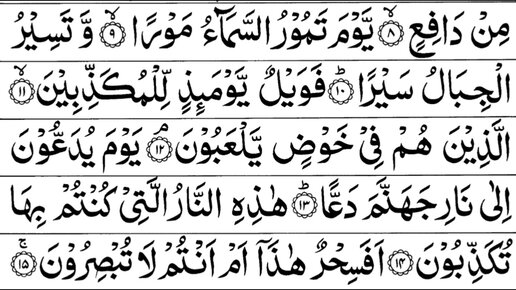 مِنْ دَافِعٍ ۙ﴿۸﴾ یَّوْمَ تَمُوْرُ السَّمَآءُ مَوْرًا ۙ﴿۹﴾ وَّ تَسِیْرُ
الْجِبَالُ سَیْرًا ؕ﴿۱۰﴾ فَوَیْلٌ یَّوْمَئِذٍ لِّلْمُكَذِّبِیْنَ ۙ﴿۱۱﴾
الَّذِیْنَ هُمْ فِیْ خَوْضٍ یَّلْعَبُوْنَ ۘ﴿۱۲﴾ یَوْمَ یُدَعُّوْنَ
اِلٰی نَارِ جَهَنَّمَ دَعًّا ؕ﴿۱۳﴾ هٰذِهِ النَّارُ الَّتِیْ كُنْتُمْ بِهَا
تُكَذِّبُوْنَ ﴿۱۴﴾ اَفَسِحْرٌ هٰذَاۤ اَمْ اَنْتُمْ لَا تُبْصِرُوْنَ ۚ﴿۱۵﴾